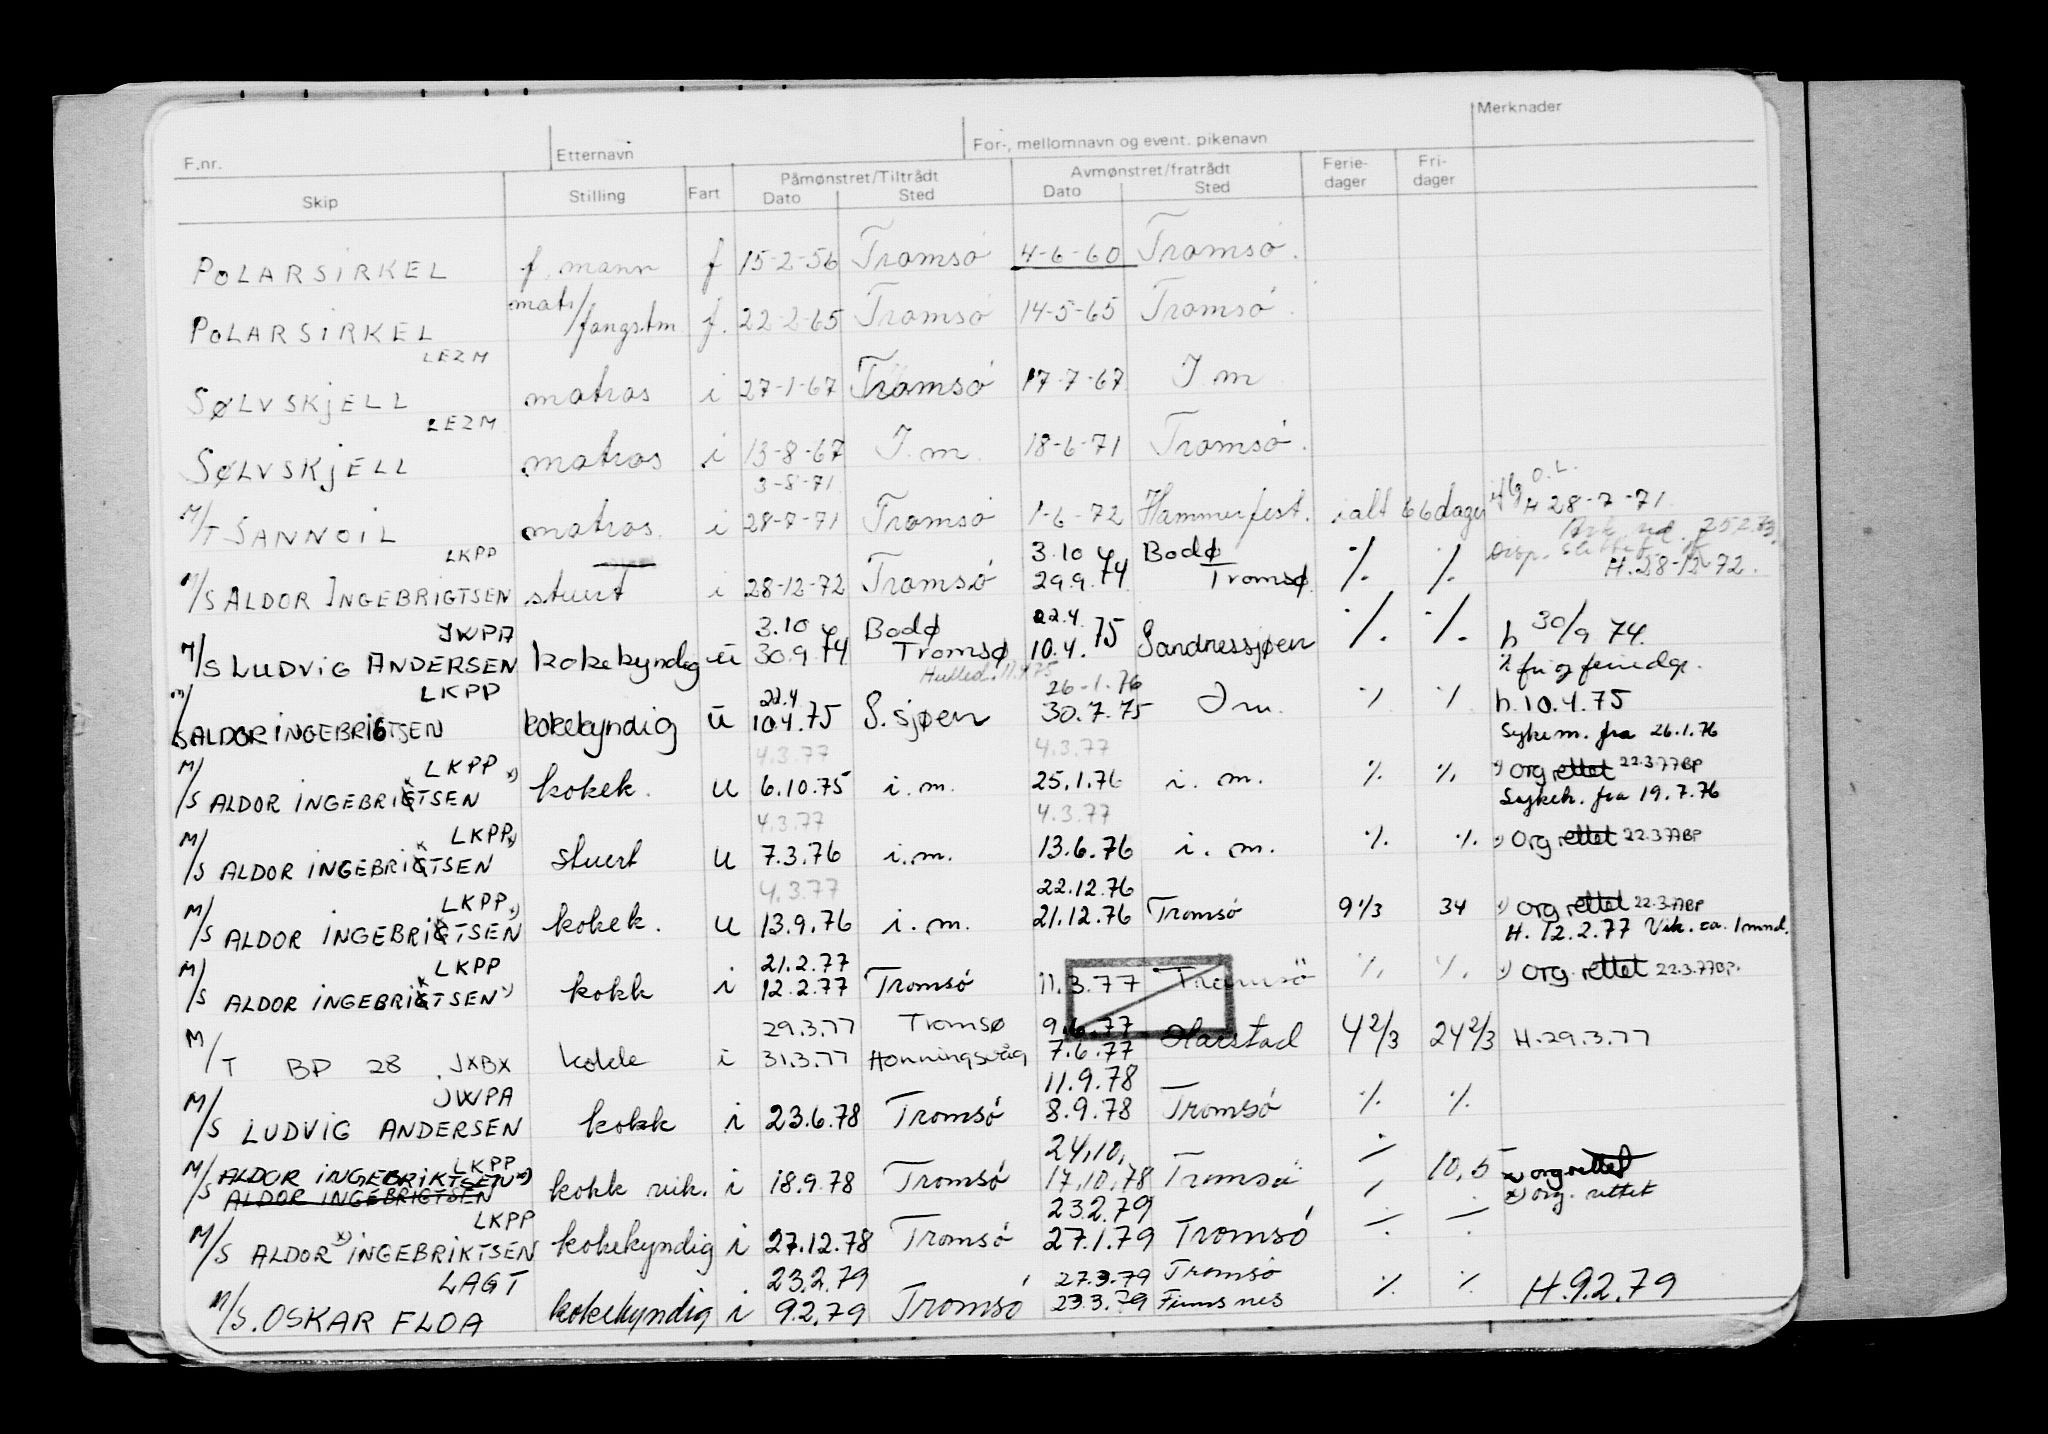 Merknader
F.nr. Etternavn For-, mellomnavn og event. pikenavn
Skip Stilling Fart Påmønstret/Tiltrådt Dato Sted Avmønstret/fratrådt Dato Sted Ferie-dager Fri-dager
POLARSIRKEL f. mann f 15-2-56 Tromsø 4-6-60 Tromsø.
POLARSIRKEL matr/fangstm f. 22-2-65 Tromsø 14-5-65 Tromsø.
LEZM
SØLVSKJELL matros i 27-1-67 Tromsø 17-7-67 I m
LEZM
SØLVSKJELL matros i 13-8-67 I.m. 18-6-71 Tromsø.
3-8-71 O.L.
M/T SANNOIL matros. i 28-7-71 Tromsø 1-6-72 Hammerfest. ialt 66 dager H 28-7-71.
LKPP 3.10 Bodø
M/S ALDOR INGEBRIGTSEN stuert i 28-12-72 Tromsø 29.9.74 Tromsø ./. ./. H.28-12-72.
JWPA 3.10 Bodø 22.4.
M/S LUDVIG ANDERSEN kokekyndig u 30.9.74 Tromsø 10.4.75 Sandnessjøen ./. ./. h 30/9 74.
% fri og feriedgr.
LKPP 22.4 26-1.76
M/S ALDOR INGEBRIGTSEN kokekyndig u 10.4.75 S.sjøen 30.7.75 I m. ./. ./. h.10.4.75
4.3.77 4.3.77 Sykem. fra 26.1.76
LKPP x)
M/S ALDOR INGEBRIGTSEN kokek. u 6.10.75 i.m. 25.1.76 i. m. ./. ./. x) org rettet 22.3.77BP
4.3.77 4.3.77 Sykeh. fra 19.7.76
LKPP x)
M/S ALDOR INGEBRIGTSEN stuert u 7.3.76 i.m. 13.6.76 i. m. ./. ./. x) org rettet 22.3.77BP
4.3.77 22.12.76
LKPP x)
M/S ALDOR INGEBRIGTSEN kokek. u 13.9.76 i.m. 21.12.76 Tromsø 9 1/3 34 x) org rettet 22.3.77BP
H. 12.2.77 Vik. ca. 1 mnd.
LKPP 21.2.77
M/S ALDOR INGEBRIGTSEN x) kokk i 12.2.77 Tromsø 11.3.77 Tromsø ./. ./. x) org. rettet 22.3.77BP.
29.3.77 Tromsø 9.6.77
M/T BP 28 JXBX kokk i 31.3.77 Honningsvåg 7.6.77 Harstad 4 2/3 24 2/3 H.29.3.77
JWPA 11.9.78
M/S LUDVIG ANDERSEN kokk i 23.6.78 Tromsø 8.9.78 Tromsø ./. ./.
LKPP 24.10.
M/S ALDOR INGEBRIKTSEN x) kokk vik. i 18.9.78 Tromsø 17.10.78 Tromsø ./. 10,5 x) org rettet
ALDOR INGEBRIGTSEN x) org. rettet
LKPP 23.2.79
M/S ALDOR x) INGEBRIKTSEN kokekyndig i 27.12.78 Tromsø 27.1.79 Tromsø ./. ./.
LAGT 23.2.79 27.3.79 Tromsø
M/S. OSKAR FLOA kokekyndig i 9.2.79 Tromsø 23.3.79 Finnsnes ./. ./. H.9.2.79